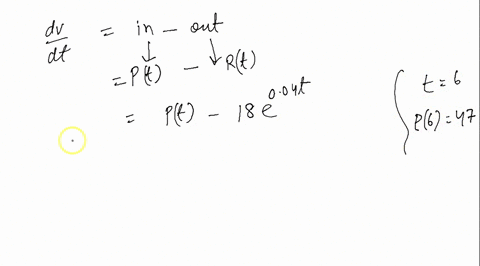 dv/dt = in - out
= P(t) - R(t)
= P(t) - 18 e^0.04t
t = 6
P(6) = 47